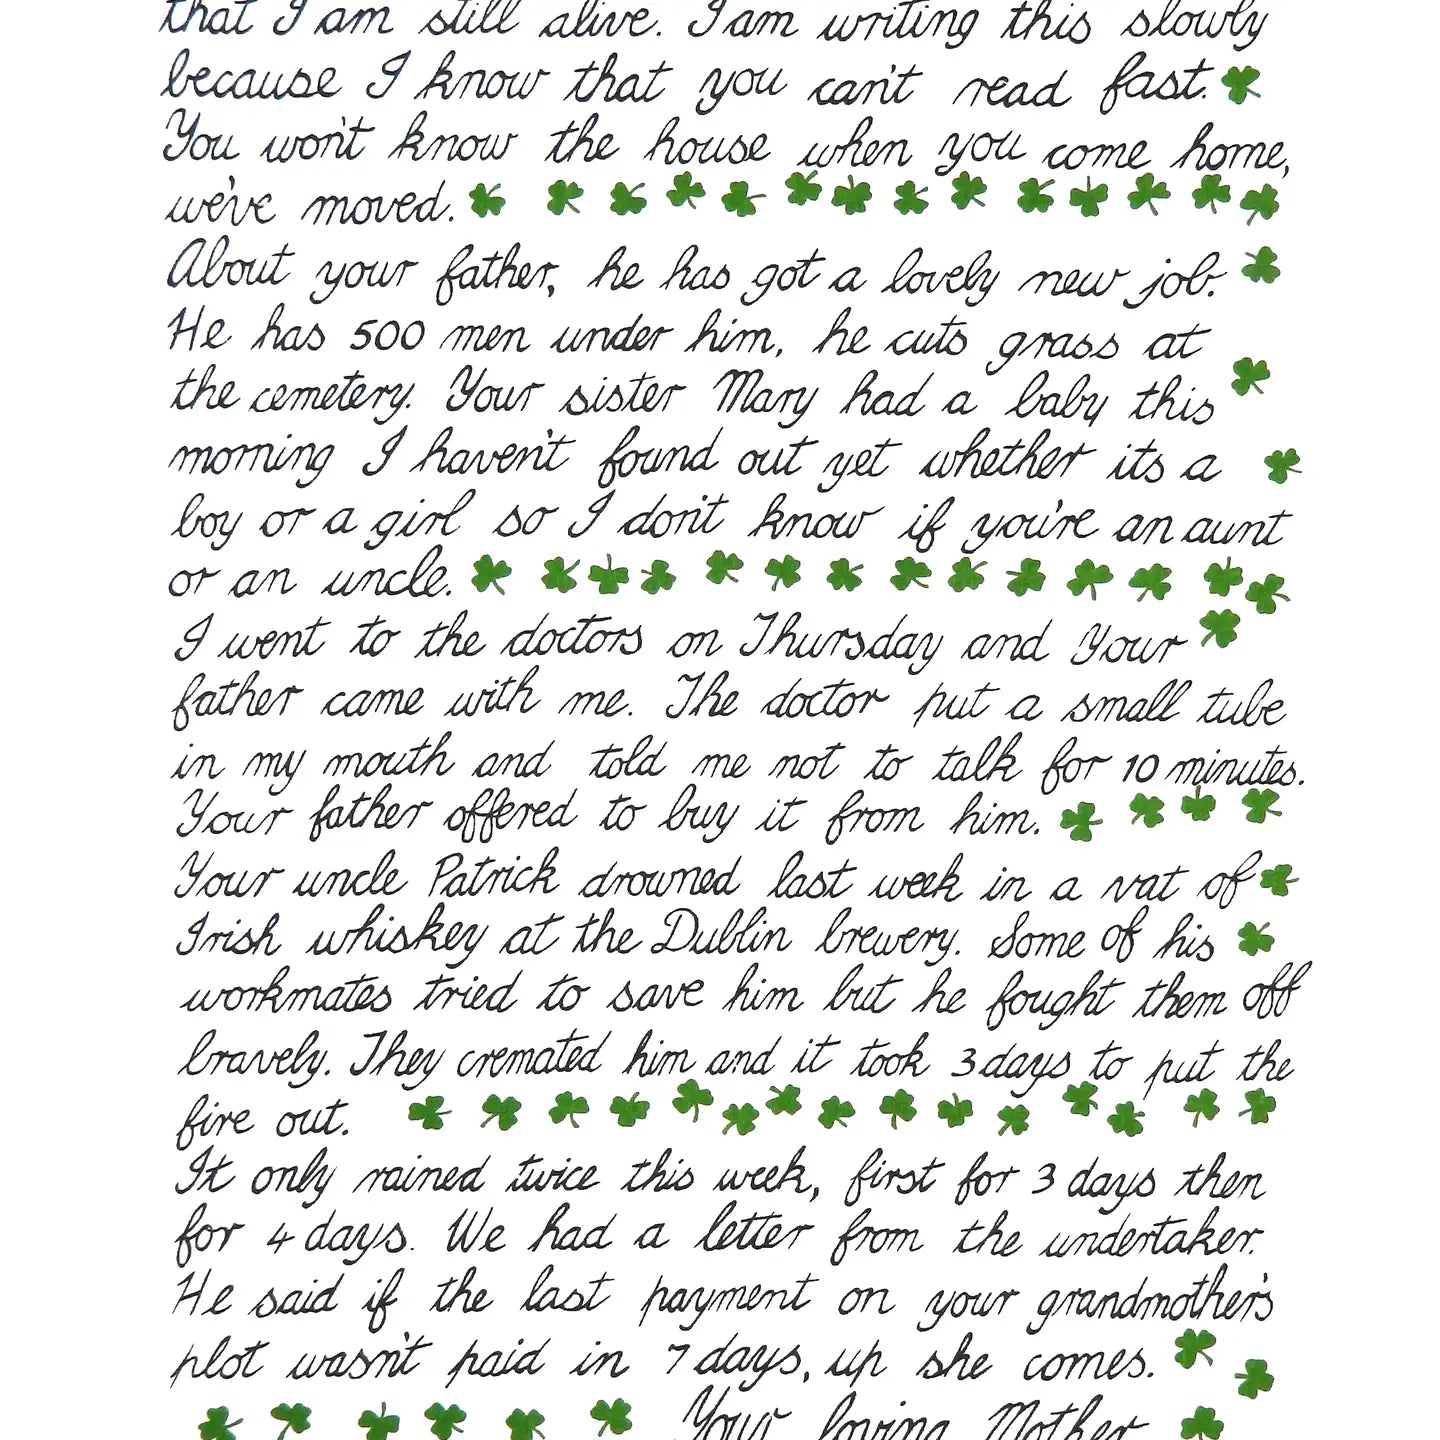 that I am still alive. I am writing this slowly
because I know that you can't read fast.
You won't know the house when you come home,
we've moved.
About your father, he has got a lovely new job.
He has 500 men under him, he cuts grass at
the cemetery. Your sister Mary had a baby this
morning I haven't found out yet whether its a
boy or a girl so I don't know if you're an aunt
or an uncle.
I went to the doctors on Thursday and Your
father came with me. The doctor put a small tube
in my mouth and told me not to talk for 10 minutes.
Your father offered to buy it from him.
Your uncle Patrick drowned last week in a vat of
Irish whiskey at the Dublin brewery. Some of his
workmates tried to save him but he fought them off
bravely. They cremated him and it took 3 days to put the
fire out.
It only rained twice this week, first for 3 days then
for 4 days. We had a letter from the undertaker.
He said if the last payment on your grandmother's
plot wasn't paid in 7 days, up she comes.
Your loving Mother